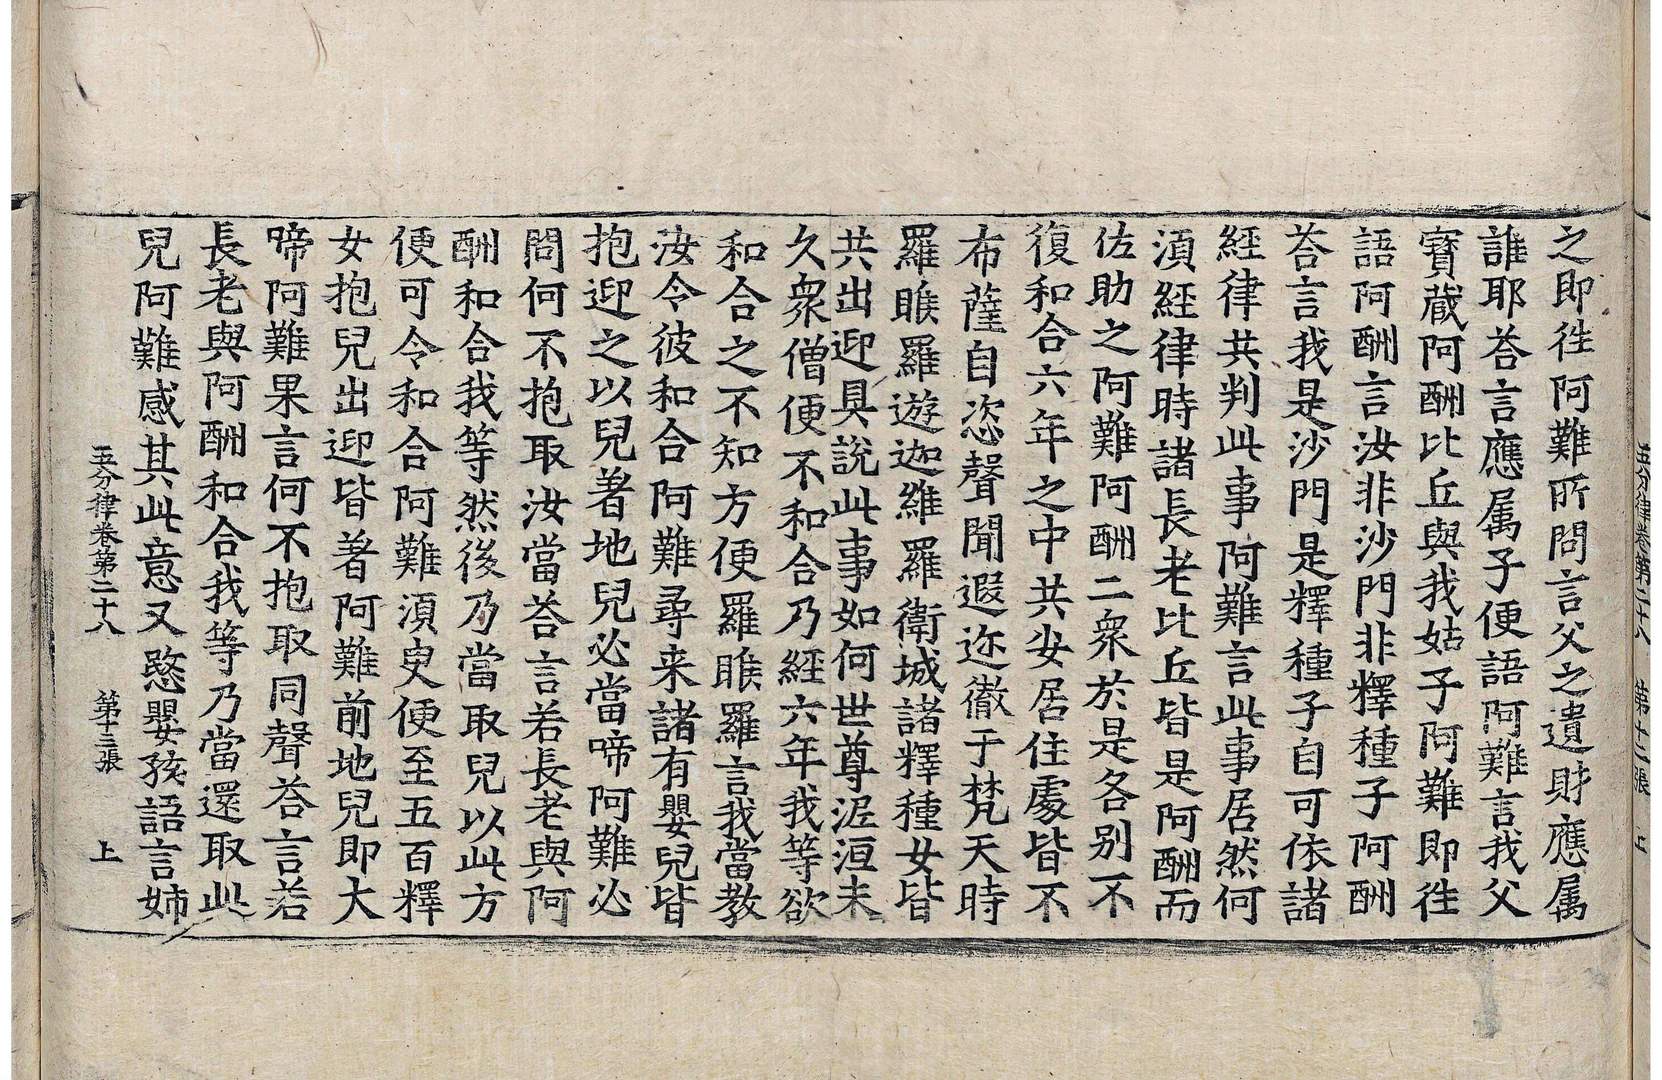 五分律卷第二十八 第十二張 上
之即往阿難所問言父之遺財應属
誰耶荅言應属子便語阿難言我父
寳蔵阿酬比丘與我姑子阿難即往
語阿酬言汝非沙門非釋種子阿酬
荅言我是沙門是釋種子自可依諸
經律共判此事阿難言此事居然何
湏經律時諸長老比丘皆是阿酬而
佐助之阿難阿酬二衆於是各别不
復和合六年之中共安居住處皆不
布薩自恣聲聞遐迩徹于梵天時
羅睺羅遊迦維羅衛城諸釋種女皆
共出迎具說此事如何世尊泥洹未
久衆僧便不和合乃經六年我等欲
和合之不知方便羅睺羅言我當教
汝令彼和合阿難尋来諸有嬰兒皆
抱迎之以兒著地兒必當啼阿難必
問何不抱取汝當荅言若長老與阿
酬和合我等然後乃當取兒以此方
便可令和合阿難湏臾便至五百釋
女抱兒出迎皆著阿難前地兒即大
啼阿難果言何不抱取同聲荅言若
長老與阿酬和合我等乃當還取此
兒阿難感其此意又愍嬰孩語言姉
五分律卷第二十八 第十三張 上